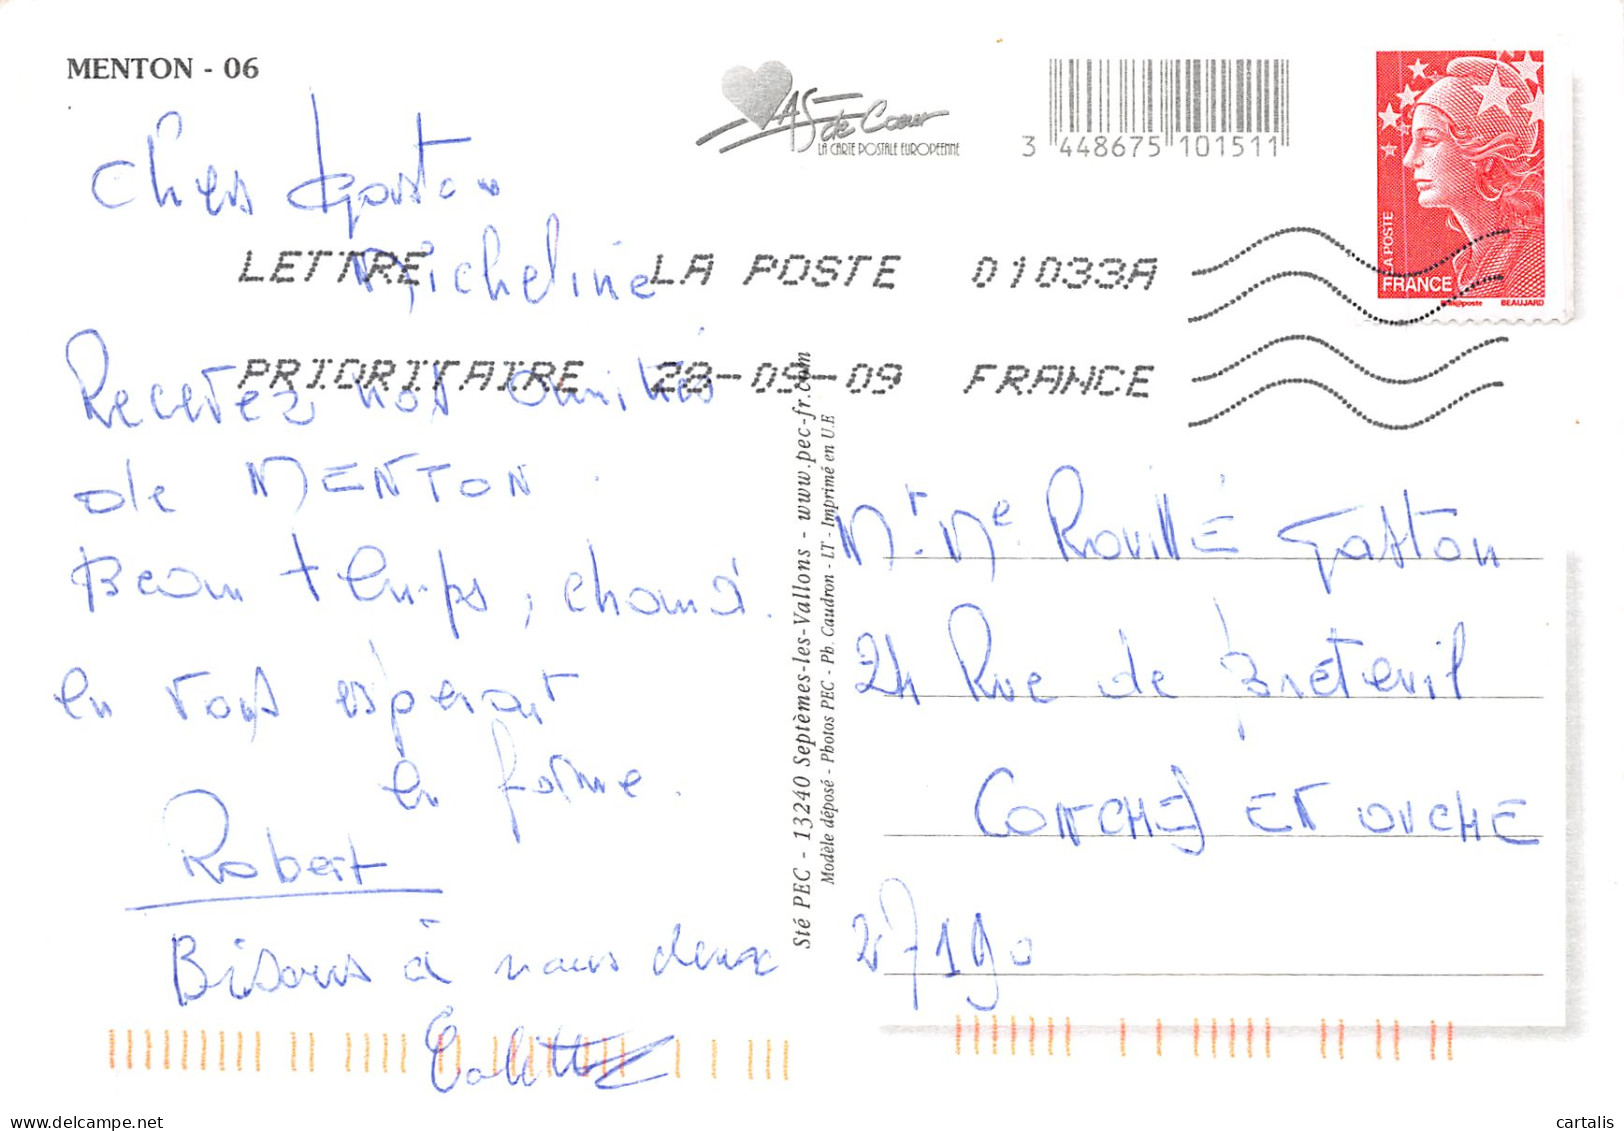 MENTON - 06
AS de Coeur
LA CARTE POSTALE EUROPEENNE
3 448675 101511
LA POSTE
FRANCE
phil@poste
BEAUJARD
Chers Gaston
Micheline
LETTRE LA POSTE 01033A
PRIORITAIRE 28-09-09 FRANCE
Recevez nos amitiés
de MENTON.
Beau temps, chaud.
en vous espérant
en forme.
Robert
Bisous à vous deux
Sté PEC - 13240 Septèmes-les-Vallons - www.pec-fr.com
Modèle déposé - Photos PEC - Ph. Caudron - LT - Imprimé en U.E
Mr. Me ROUILLÉ Gaston
24 Rue de Breteuil
CONCHES EN OUCHE
27190
cartalis